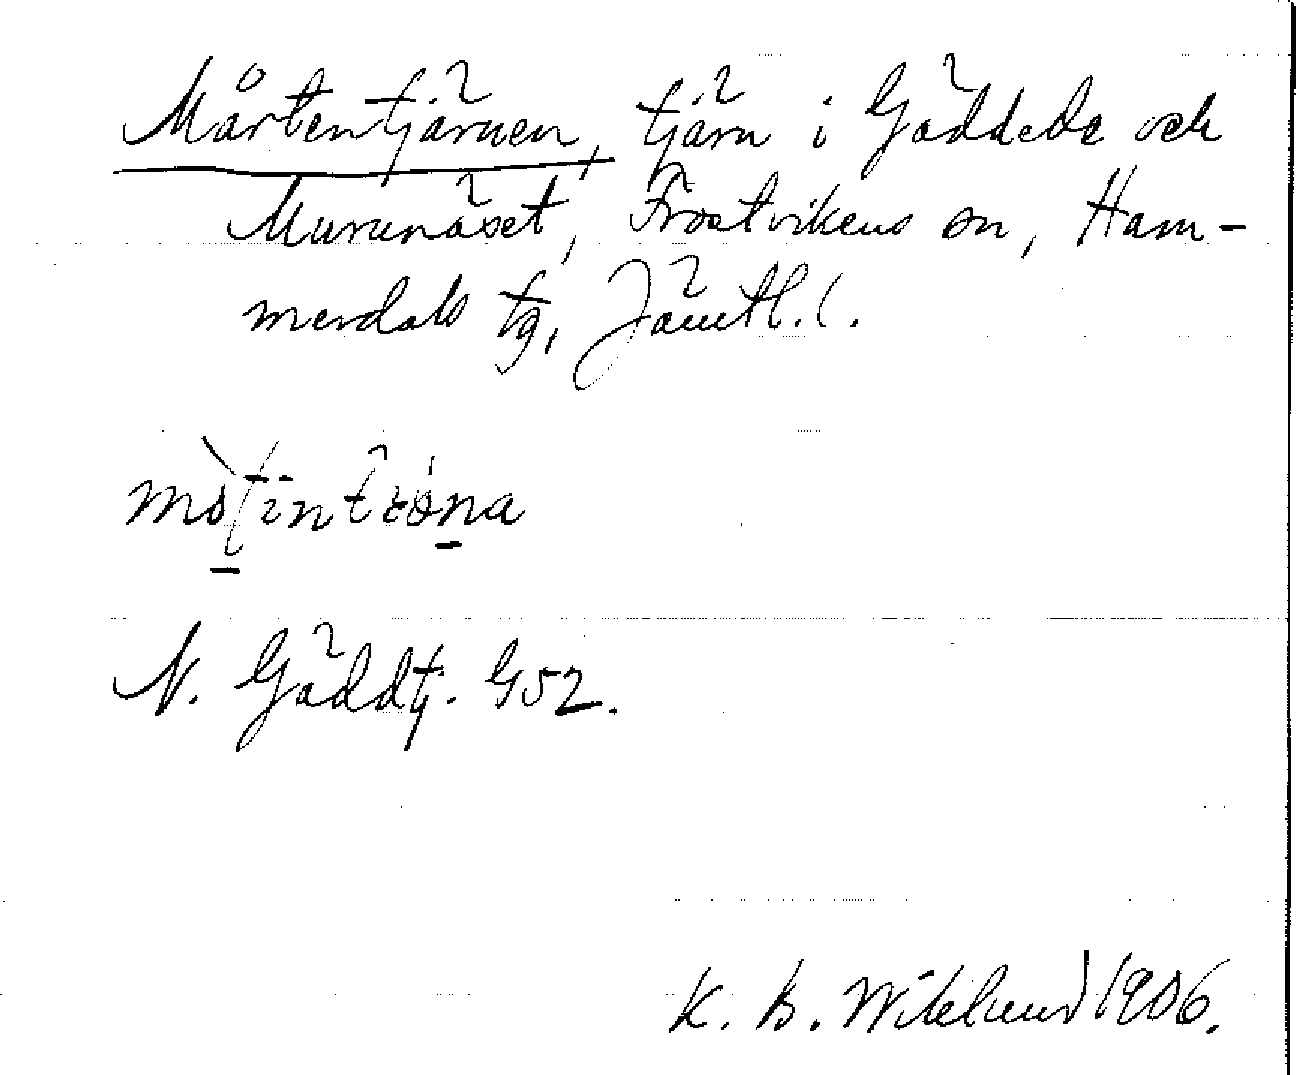 Mårtentjärnen, tjärn i Gäddede och
Murunäset, Frostvikens sn, Ham-
merdals tg, Jämtl. l.
N. Gäddtj. G52.
K. B. Wiklund 1906.